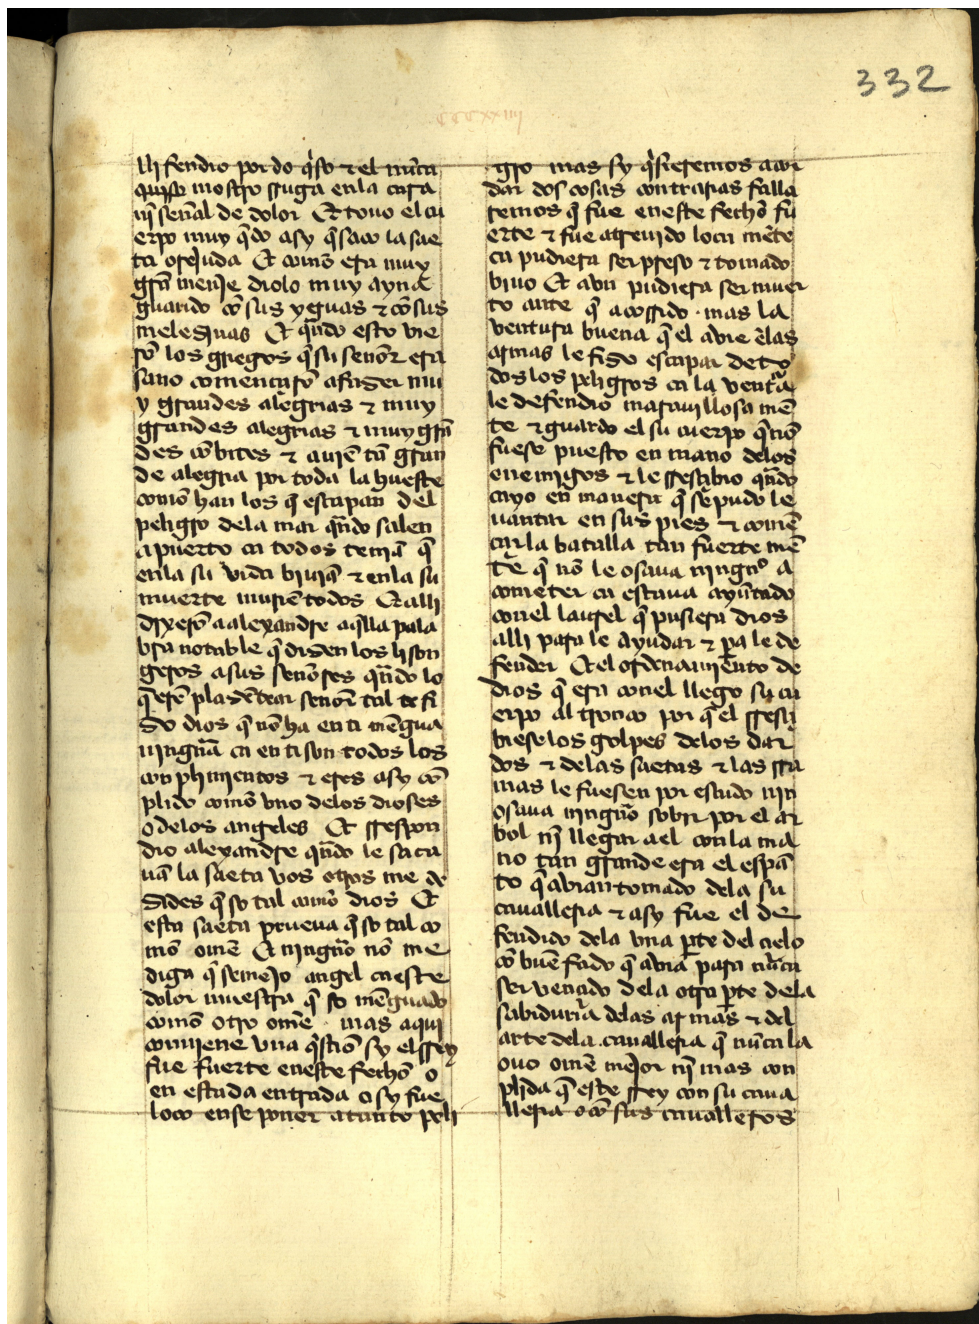 332
CCCxxiiij
lli fendio por do q̃so ⁊ el nũca
quiso mostro rruga en la cara
nĩ señal de dolor Et touo el cu
erpo muy q̃do asy q̃ saco la sae
ta orejuda Et como era muy
grã menje diolo muy ayna
guarido cõ sus yguas ⁊ cõ sus
melezinas Et qñdo esto vie
rõ los griegos q̃ su señor era
sano comencarõ a fazer mu
y grandes alegrias ⁊ muy
grandes alegrias ⁊ muy grã
des cõbites ⁊ auiẽ tã gran
de alegria por toda la hueste
como han los q̃ escapan del
peligro dela mar qñdo salen
a puerto ca todos teniã q̃
en la su vida biuiã ⁊ en la su
muerte muriẽ todos Et alli
dixerõ a alexandre aq̃lla pala
bra notable q̃ dizen los lison
geros a sus señores qñdo lo
q̃ erẽ plazẽtear señor tal te fi
zo dios q̃ nõ ha en ti mẽgua
ningũa ca en ti son todos los
conplimientos ⁊ eres asy cõ
plido como vno delos dioses
o delos angeles Et rrespon
dio alexandre qñdo le saca
uã la saeta vos otros me de
zides q̃ so tal como dios Et
esta saeta prueua q̃ so tal co
mo omẽ Et ningũo nõ me
diga q̃ semejo angel ca este
dolor muestra q̃ so mẽguado
como otro omẽ · mas aqui
conuiene vna q̃stiõ sy el rrey
fue fuerte en este fecho o
en estada entrada o sy fue
loco en se poner a tanto peli
gro mas sy q̃sieremos acor
dar dos cosas contrarias falla
remos q̃ fue en este fecho fu
erte ⁊ fue atreuido loca mẽte
ca pudiera ser preso ⁊ tomado
biuo Et avn pudiera ser muer
to ante q̃ acorrido · mas la
ventura buena q̃ el avie ẽlas
armas le fizo escapar de to
dos los peligros ca la ventũra
le defendio marauillosa mẽ
te ⁊ guardo el su cuerpo q̃ nõ
fuese puesto en mano delos
enemigos ⁊ le rresçibio qñdo
cayo en manera q̃ sẽ pudo le
uantar en sus pies ⁊ comẽ
car la batalla tan fuerte mẽ
te q̃ nõ le osaua ningũo a
cometer ca estaua ayũtado
con el laurel q̃ pusiera dios
alli para le ayudar ⁊ p̃a le de
fender Et el ordenamiento de
dios q̃ era con el llego su cu
erpo al tronco por q̃ el rresçi
biese los golpes delos dar
dos ⁊ delas saetas ⁊ las rra
mas le fuesen por escudo nin
osaua ningũo sobir por el ar
bol nĩ llegar a el con la ma
no tan grande era el espã
to q̃ abian tomado dela su
caualleria ⁊ asy fue el de
fendido dela vna p̃te del cielo
cõ buẽ fado q̃ abiã para nũca
ser vencido dela otra p̃te dela
sabiduria delas armas ⁊ del
arte dela caualleria q̃ nũca la
ouo omẽ mejor nĩ mas con
plida q̃ este rrey con su caua
lleria o cõ sus caualleros